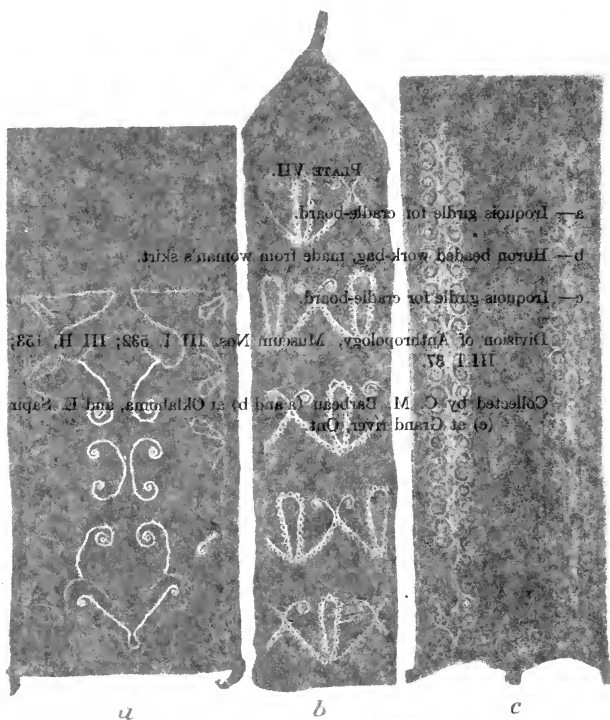 PLATE VII.
a— Iroquois girdle for cradle-board.
b— Huron beaded work-bag, made from woman's skirt.
c— Iroquois girdle for cradle-board.
Division of Anthropology, Museum Nos. III I, 532; III H, 153;
III I 87.
Collected by C. M. Barbeau (a and b) at Oklahoma, and E. Sapir
(c) at Grand river, Ont.
a b c